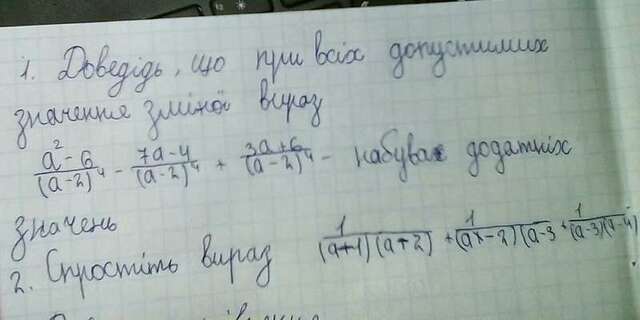 1. Доведідь, що при всіх допустимих
значення зміної вираз
a² - 6/(a-2)⁴ - 7a-4/(a-2)⁴ + 3a+6/(a-2)⁴ - набуває додатніх
значень
2. Спростіть вираз 1/(a+1)(a+2) + 1/(a+-2)(a-3 + 1/(a-3)(a-4)